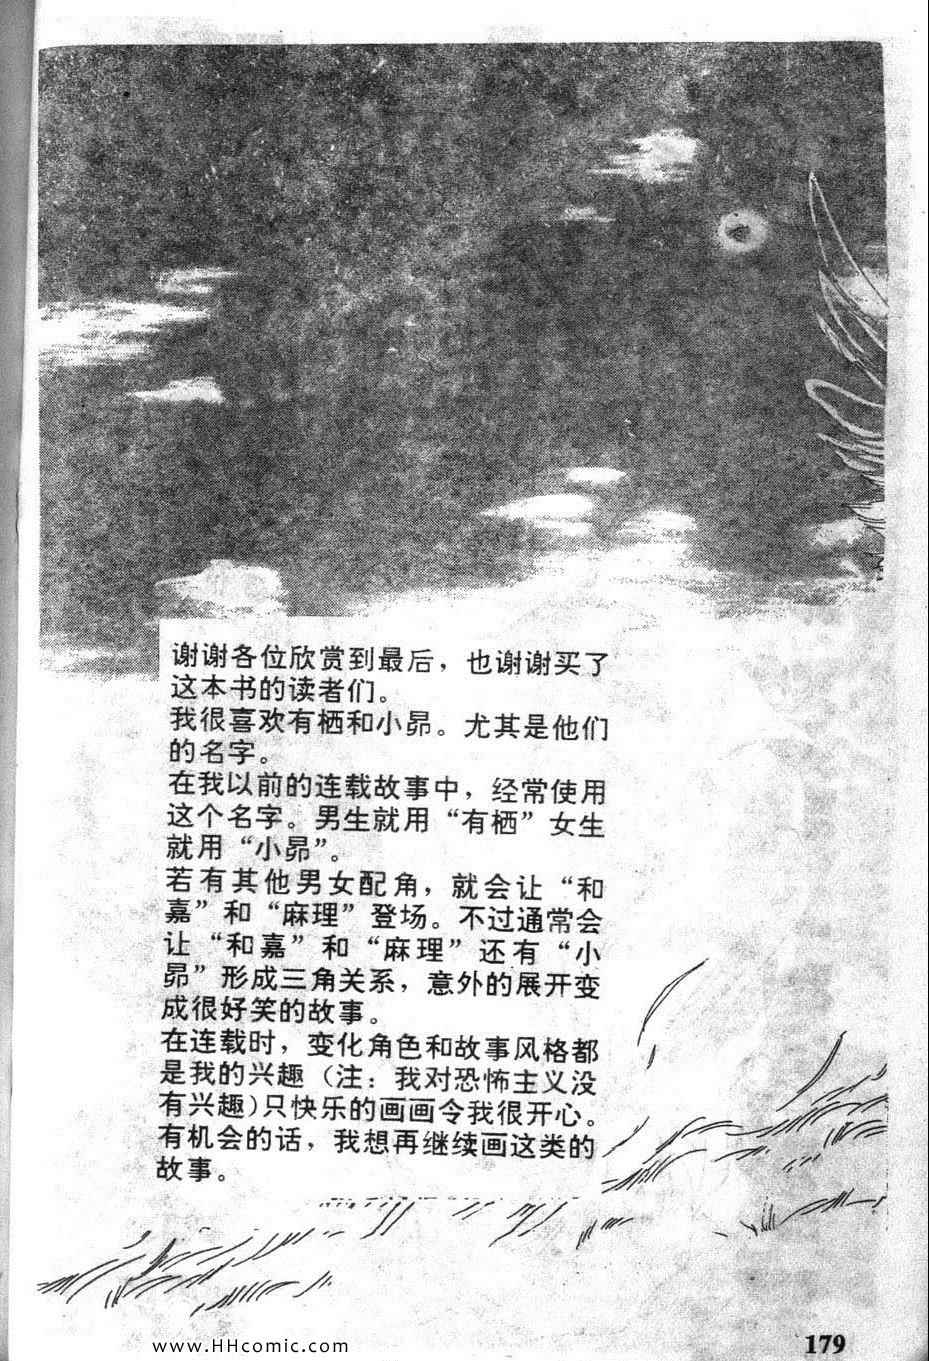 谢谢各位欣赏到最后，也谢谢买了
这本书的读者们。
我很喜欢有栖和小昴。尤其是他们
的名字。
在我以前的连载故事中，经常使用
这个名字。男生就用“有栖”女生
就用“小昴”。
若有其他男女配角，就会让“和
嘉”和“麻理”登场。不过通常会
让“和嘉”和“麻理”还有“小
昴”形成三角关系，意外的展开变
成很好笑的故事。
在连载时，变化角色和故事风格都
是我的兴趣（注：我对恐怖主义没
有兴趣)只快乐的画画令我很开心。
有机会的话，我想再继续画这类的
故事。
www.HHcomic.com
179